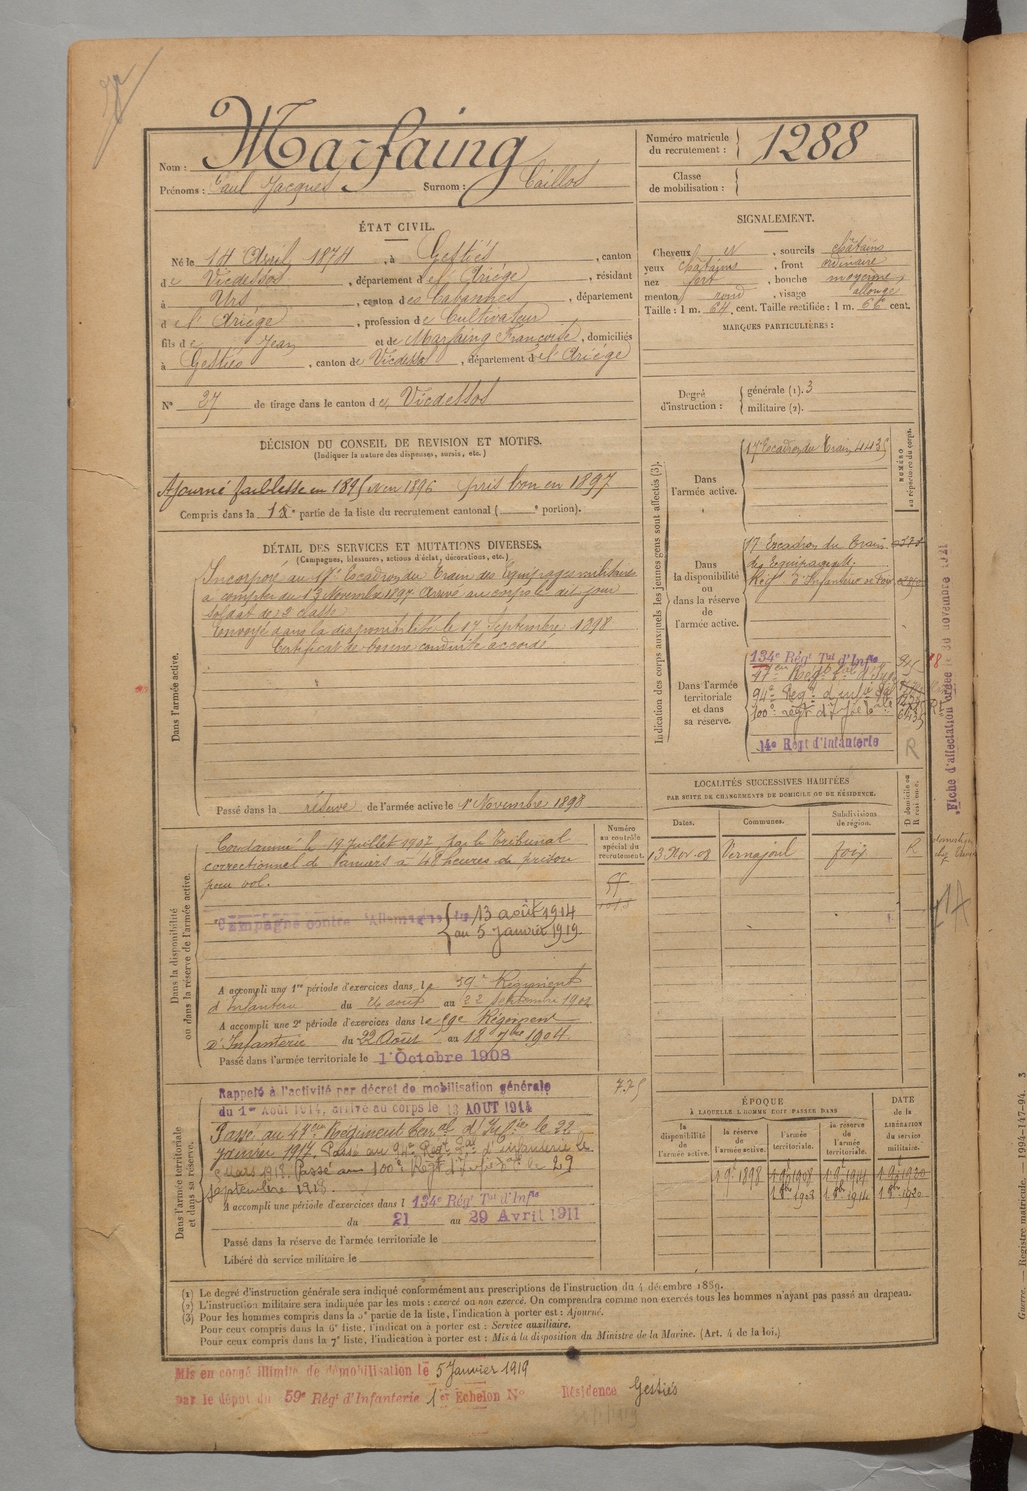 Nom : Marfaing
Prénoms : Paul Jacques Surnom : Caillos
Numéro matricule du recrutement : 1288
Classe de mobilisation :
ÉTAT CIVIL.
Né le 14 Avril 1874, à Gestiès, canton
de Vicdessos, département de l'Ariége, résidant
à Urs, canton des Cabannes, département
de l'Ariége, profession de Cultivateur
fils de Jean et de Marfaing Françoise, domiciliés
à Gestiés, canton de Vicdessos, département de l'Ariége
N° 27 de tirage dans le canton de Vicdessos
SIGNALEMENT.
Cheveux N, sourcils châtains
yeux châtains, front ordinaire
nez fort, bouche moyenne
menton rond, visage allongé
Taille : 1 m. 64 cent. Taille rectifiée : 1 m. 66 cent.
MARQUES PARTICULIÈRES :
Degré d'instruction : générale (1). 3
militaire (2).
DÉCISION DU CONSEIL DE REVISION ET MOTIFS.
(Indiquer la nature des dispenses, sursis, etc.)
Ajourné faiblesse en 1895 et en 1896 pris bon en 1897
Compris dans la 1e partie de la liste du recrutement cantonal ( e portion).
DÉTAIL DES SERVICES ET MUTATIONS DIVERSES.
(Campagnes, blessures, actions d'éclat, décorations, etc.)
Dans l'armée active.
Incorporé au 17e Escadron du Train des Equipages militaires
à compter du 13 Novembre 1897 Arrivé au corps le dit jour
soldat de 2e classe
Envoyé dans la disponibilité le 17 Septembre 1898
Certificat de bonne conduite accordé
Passé dans la réserve de l'armée active le 1er Novembre 1898
Indication des corps auxquels les jeunes gens sont affectés (3).
NUMÉRO au répertoire du corps.
Dans l'armée active.
17e Escadron du Train 4435
Dans la disponibilité ou dans la réserve de l'armée active.
17 Escadron du Train
des Equipages
Régt d'Infanterie de Foix
Dans l'armée territoriale et dans sa réserve.
134e Régt Tal d'Infie
94e Régt d'infie Tale
100e régt d'Infie Tale
14e Régt d'Infanterie
R
Fiche d'affectation créée le 30 novembre 1921
LOCALITÉS SUCCESSIVES HABITÉES
PAR SUITE DE CHANGEMENTS DE DOMICILE OU DE RÉSIDENCE.
Dates. Communes. Subdivisions de région. D domicile ou R résidence.
13 Nov. 08 Vernajoul Foix R
Dans la disponibilité ou dans la réserve de l'armée active.
Numéro au contrôle spécial du recrutement.
Condamné le 19 juillet 1907 par le Tribunal
correctionnel de Pamiers à 48 heures de prison
pour vol.
Campagne contre l'Allemagne du 13 août 1914
au 5 janvier 1919
A accompli une 1re période d'exercices dans le 59e Régiment
d'Infanterie du 26 août au 22 septembre 1902
A accompli une 2e période d'exercices dans le 59e Régiment
d'Infanterie du 22 Août au 18 7bre 1904
Passé dans l'armée territoriale le 1 Octobre 1908
Dans l'armée territoriale et dans sa réserve.
725
Rappelé à l'activité par décret de mobilisation générale
du 1er Août 1914, arrivé au corps le 13 AOUT 1914
Passé au Régiment Terral d'Infie le 22
janvier 1917. Passé au 94e Régt Tal d'infanterie le
Mars 1918. Passé au 100e Régt d'Infie Tale le 29
septembre 1918.
A accompli une période d'exercices dans l 134e Régt Tal d'Infie
du 21 au 29 Avril 1911
Passé dans la réserve de l'armée territoriale le
Libéré du service militaire le
ÉPOQUE
À LAQUELLE L'HOMME DOIT PASSER DANS
la disponibilité de l'armée active. la réserve de l'armée active. l'armée territoriale. la réserve de l'armée territoriale.
DATE de la LIBÉRATION du service militaire.
1 9e 1898 1 9e 1908 1 9e 1914 1 9e 1920
(1) Le degré d'instruction générale sera indiqué conformément aux prescriptions de l'instruction du 4 décembre 1889.
(2) L'instruction militaire sera indiquée par les mots : exercé ou non exercé. On comprendra comme non exercés tous les hommes n'ayant pas passé au drapeau.
(3) Pour les hommes compris dans la 5e partie de la liste, l'indication à porter est : Ajourné.
Pour ceux compris dans la 6e liste, l'indication à porter est : Service auxiliaire.
Pour ceux compris dans la 7e liste, l'indication à porter est : Mis à la disposition du Ministre de la Marine. (Art. 4 de la loi.)
Mis en congé illimité de démobilisation le 5 Janvier 1919
par le dépôt du 59e Régt d'Infanterie 1er Echelon N° Résidence Gestiés
Guerre. — Registre matricule. —1994-147-94. 3